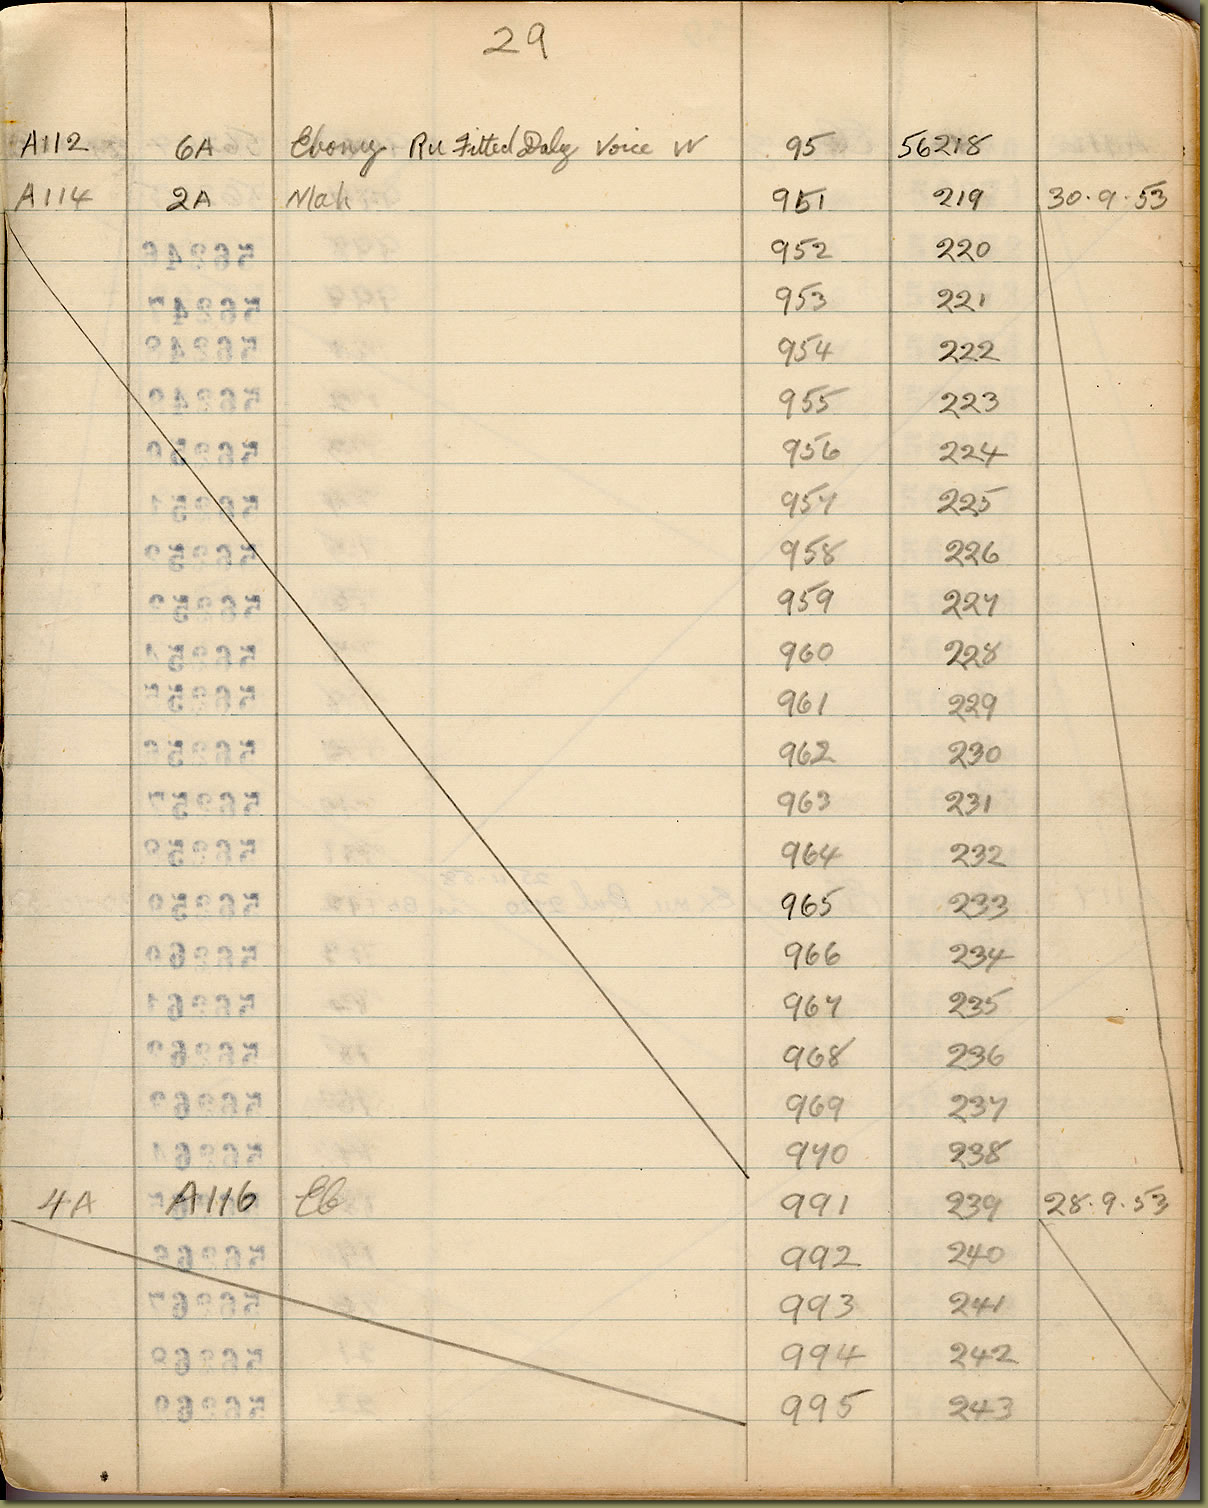 29
A112 6A Ebony Ru Fitted Daly Voice W 95 56218
A114 2A Mah 951 219 30.9.53
952 220
953 221
954 222
955 223
956 224
957 225
958 226
959 227
960 228
961 229
962 230
963 231
964 232
965 233
966 234
967 235
968 236
969 237
970 238
4A A116 Eb 991 239 28.9.53
992 240
993 241
994 242
995 243